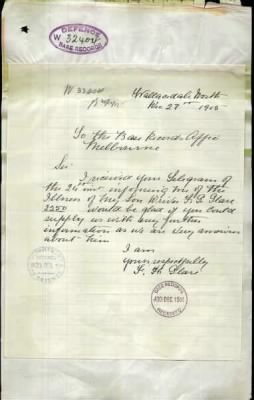 DEFENCE
W 32404
BASE RECORDS
W 32404
Nov 27th 1915
To the Base Records Office
Melbourne
Sir
I received your Telegram of
the 26th inst informing me of the
Illness of my Son
2250 would be glad if you could
supply us with any further
information as we are very anxious
about him
I am
yours respectfully
BASE RECORDS
RECEIVED